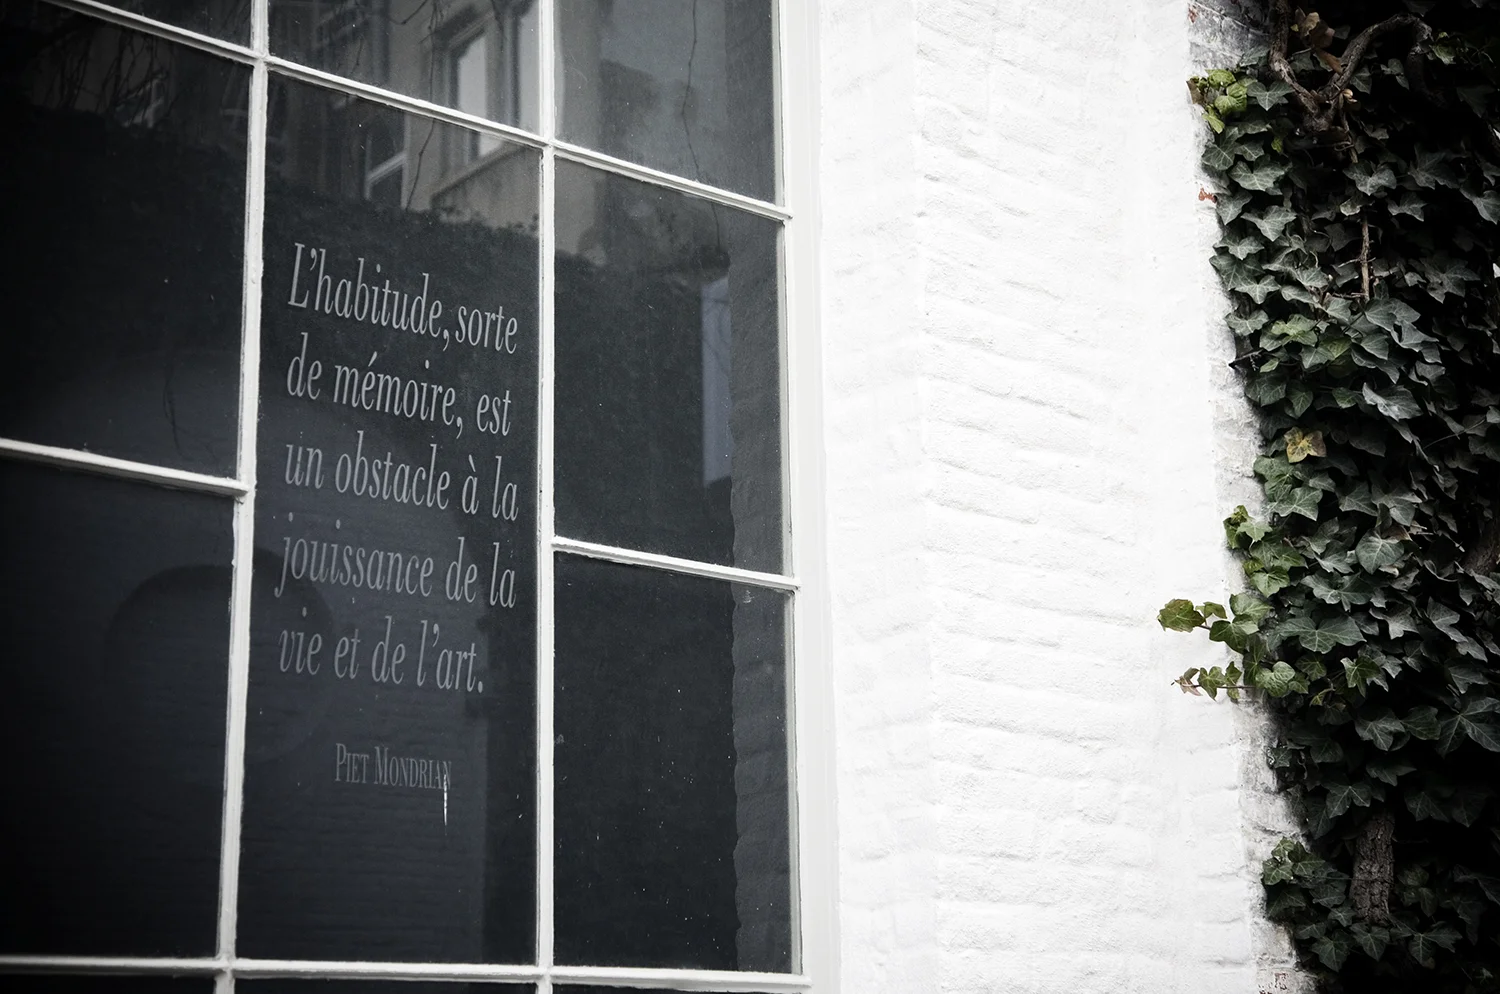 L'habitude, sorte
de mémoire, est
un obstacle à la
jouissance de la
vie et de l'art.
PIET MONDRIAN